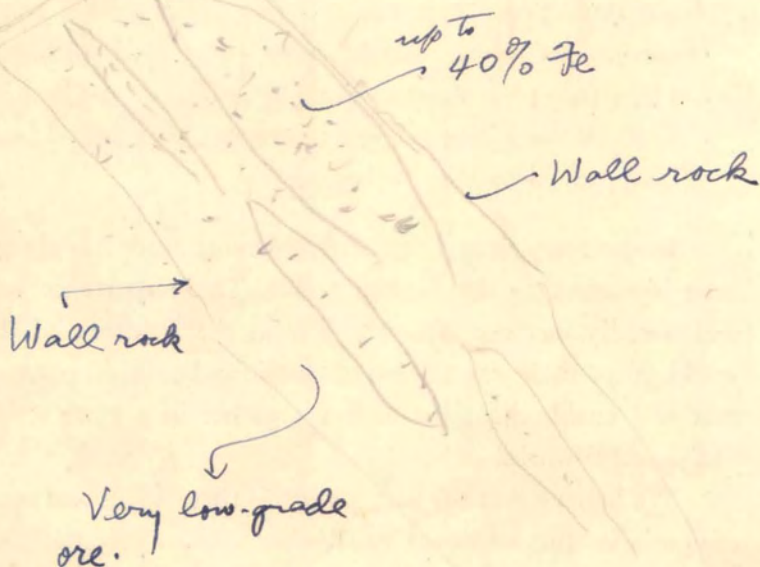 up to
40% Fe
Wall rock
Wall rock
Very low-grade
ore.